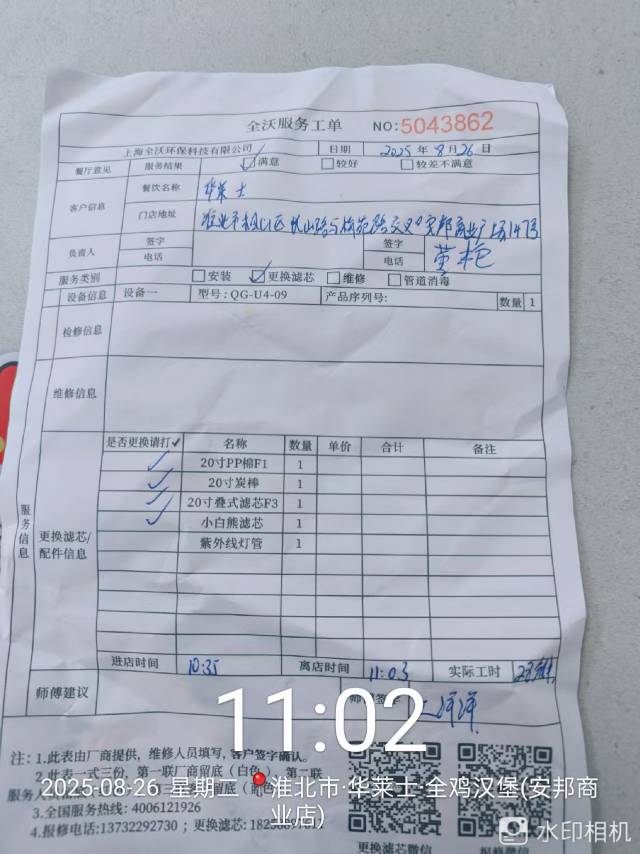 全沃服务工单 NO:5043862
上海全沃环保科技有限公司 日期 2025 年 8 月 26 日
餐厅意见 服务结果 ☑满意 □较好 □较差不满意
客户信息 餐饮名称 华莱士
门店地址 淮北市相山区 安邦商业广场147号
负责人 签字 签字 董艳
电话 电话
服务类别 □安装 ☑更换滤芯 □维修 □管道消毒
设备信息 设备一 型号: QG-U4-09 产品序列号: 数量 1
检修信息
维修信息
服务信息
更换滤芯/配件信息
是否更换请打✓ 名称 数量 单价 合计 备注
✓ 20寸PP棉F1 1
✓ 20寸炭棒 1
✓ 20寸叠式滤芯F3 1
✓ 小白熊滤芯 1
紫外线灯管 1
进店时间 10:35 离店时间 11:03 实际工时
师傅建议
11:02
注: 1.此表由厂商提供，维修人员填写, 客户签字确认。
2.此表一式三份，第一联厂商留底（白色），第二联
服务人员
3.全国服务热线: 4006121926
4.报修电话:13732292730 ; 更换滤芯:
更换滤芯微信 报修微信
2025-08-26 星期二 淮北市·华莱士·全鸡汉堡(安邦商
业店)
水印相机